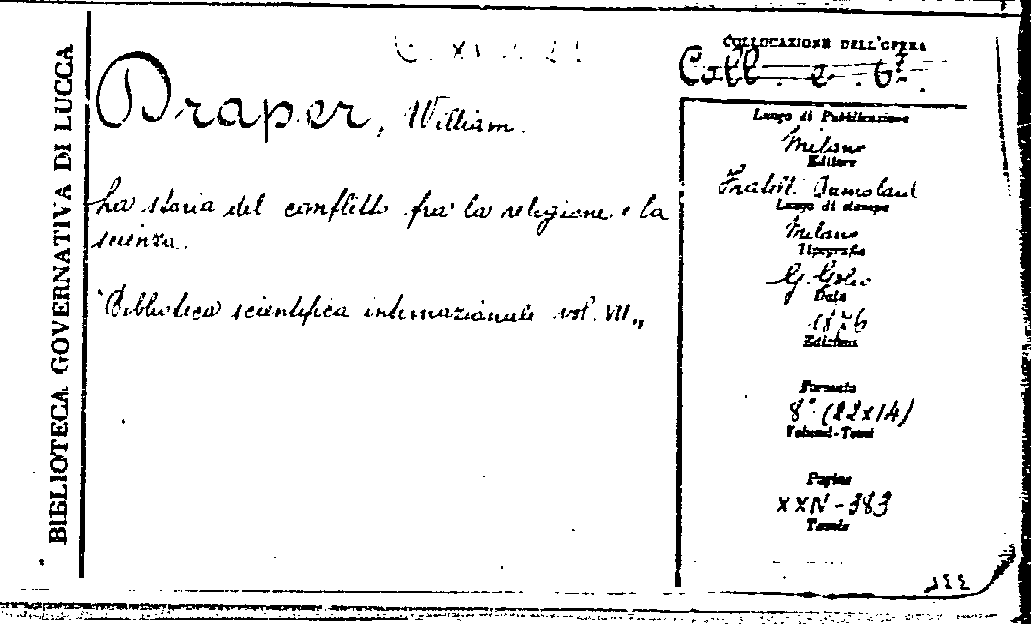 BIBLIOTECA GOVERNATIVA DI LUCCA
Draper, William.
La storia del conflitto fra la religione e la
scienza.
"Biblioteca scientifica internazionale vol. VII„
COLLOCAZIONE DELL'OPERA
Coll. e. 67.
Luogo di Pubblicazione
Milano
Editore
Fratelli Dumolard
Luogo di stampa
Milano
Tipografia
G. Golio
Data
1876
Edizione
Formato
8° (22x14)
Volumi-Tomi
Pagine
XXIV-383
Tavole